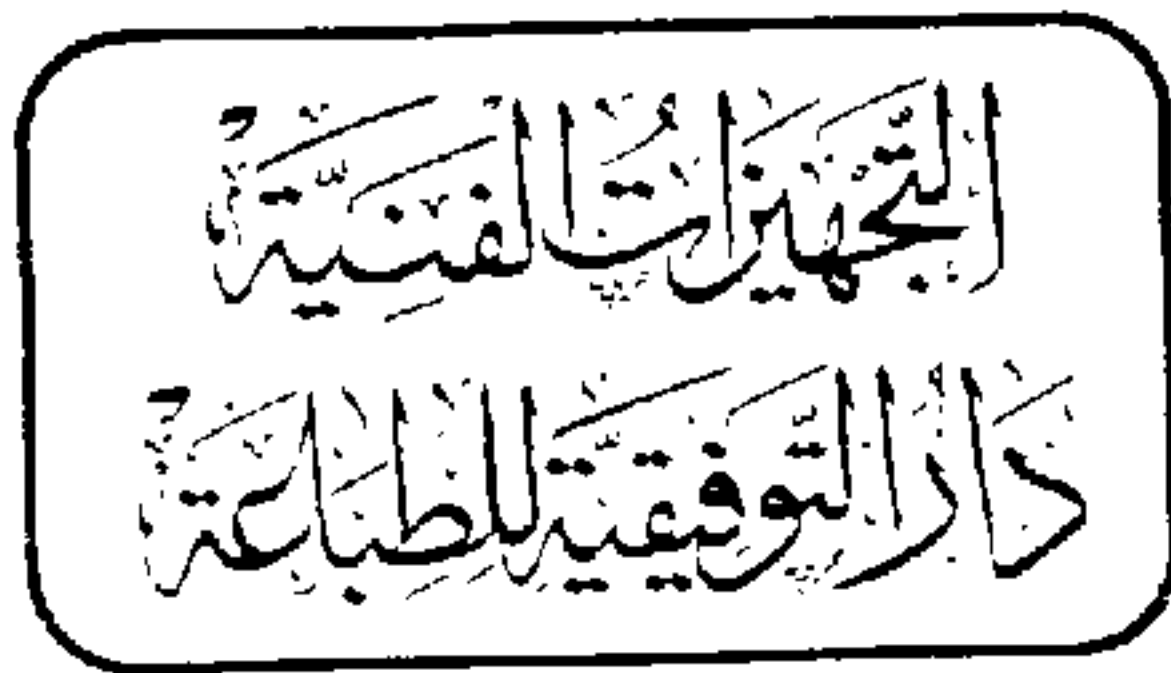 التَّجْهِيزَاتُ الفَنِيَّة
دَارُ التَّوفِيقِيَّة لِلطِّبَاعَة